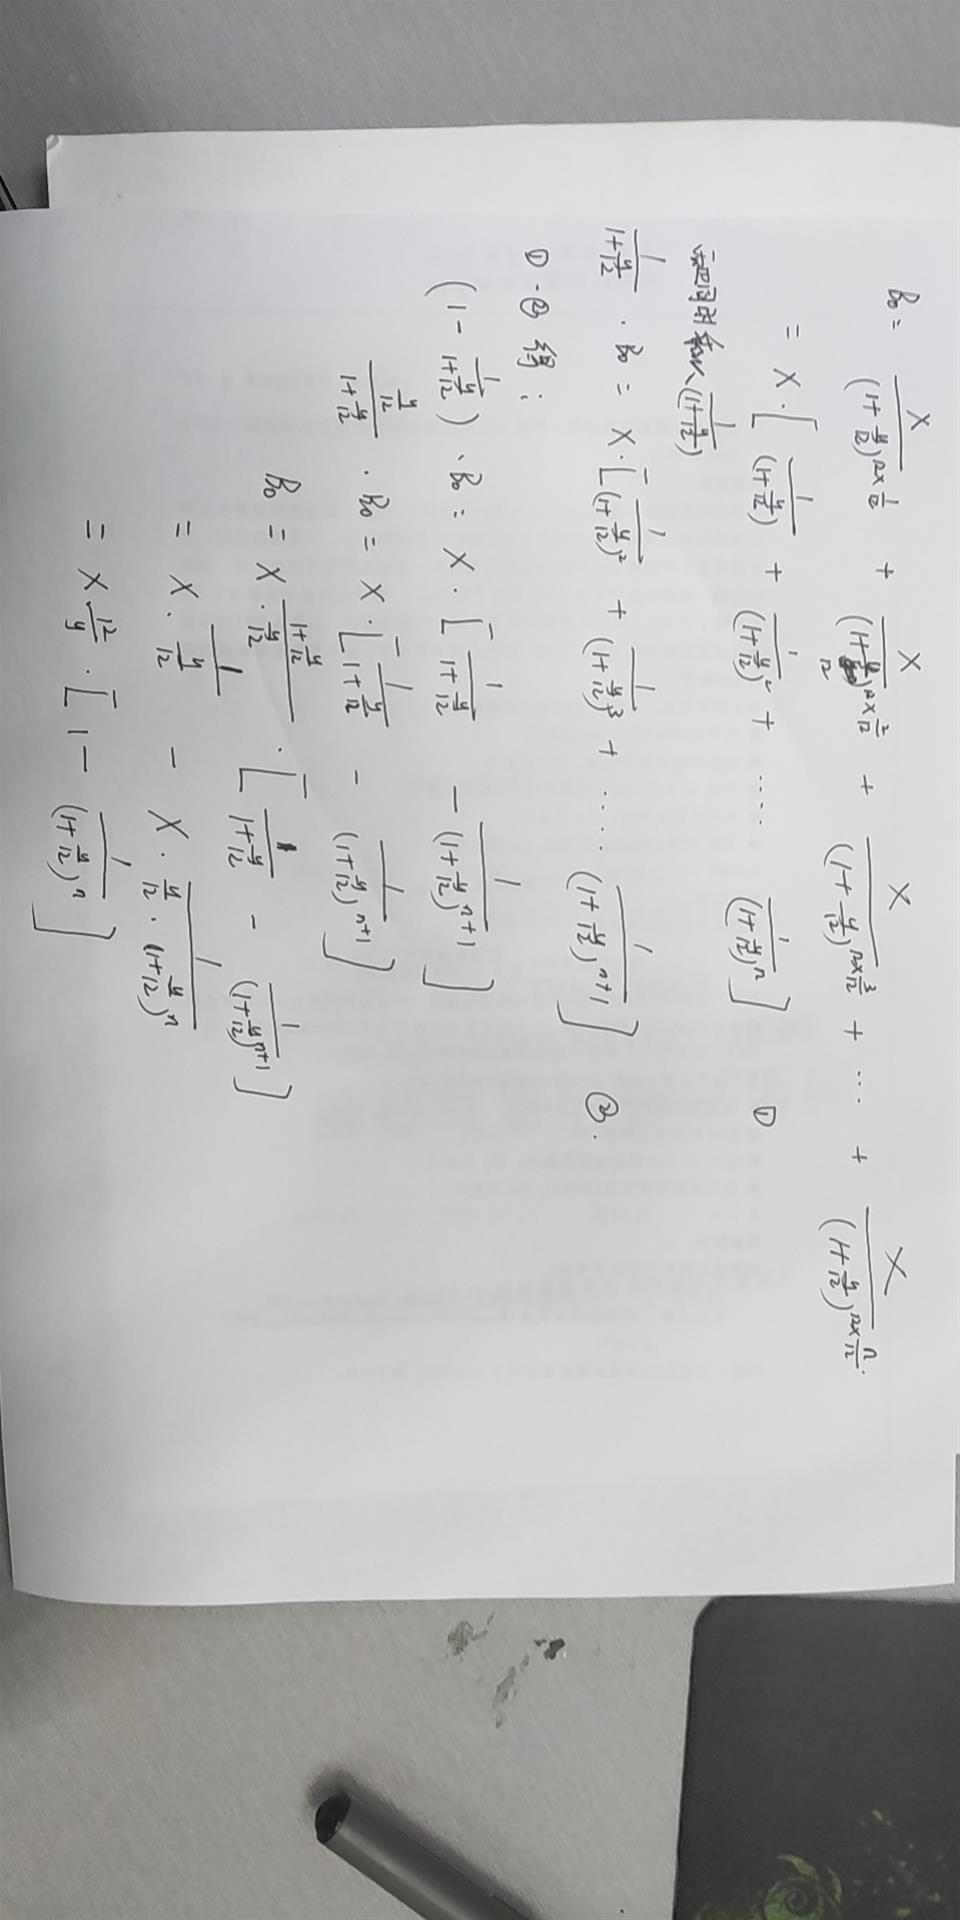 B₀ = X/(1+y/12)^(12×1/12) + X/(1+y/12)^(12×2/12) + X/(1+y/12)^(12×3/12) + … + X/(1+y/12)^(12×n/12).
= X·[1/(1+y/12) + 1/(1+y/12)² + …… 1/(1+y/12)ⁿ] ①
同时乘以 (1/(1+y/12))
1/(1+y/12) · B₀ = X·[1/(1+y/12)² + 1/(1+y/12)³ + … 1/(1+y/12)^(n+1)] ②.
① - ② 得:
(1 - 1/(1+y/12)) · B₀ = X·[1/(1+y/12) - 1/(1+y/12)^(n+1)]
(y/12)/(1+y/12) · B₀ = X·[1/(1+y/12) - 1/(1+y/12)^(n+1)]
B₀ = X·(1+y/12)/(y/12) · [1/(1+y/12) - 1/(1+y/12)^(n+1)]
= X · 1/(y/12) - X · 1/(y/12·(1+y/12)ⁿ)
= X 12/y · [1 - 1/(1+y/12)ⁿ]